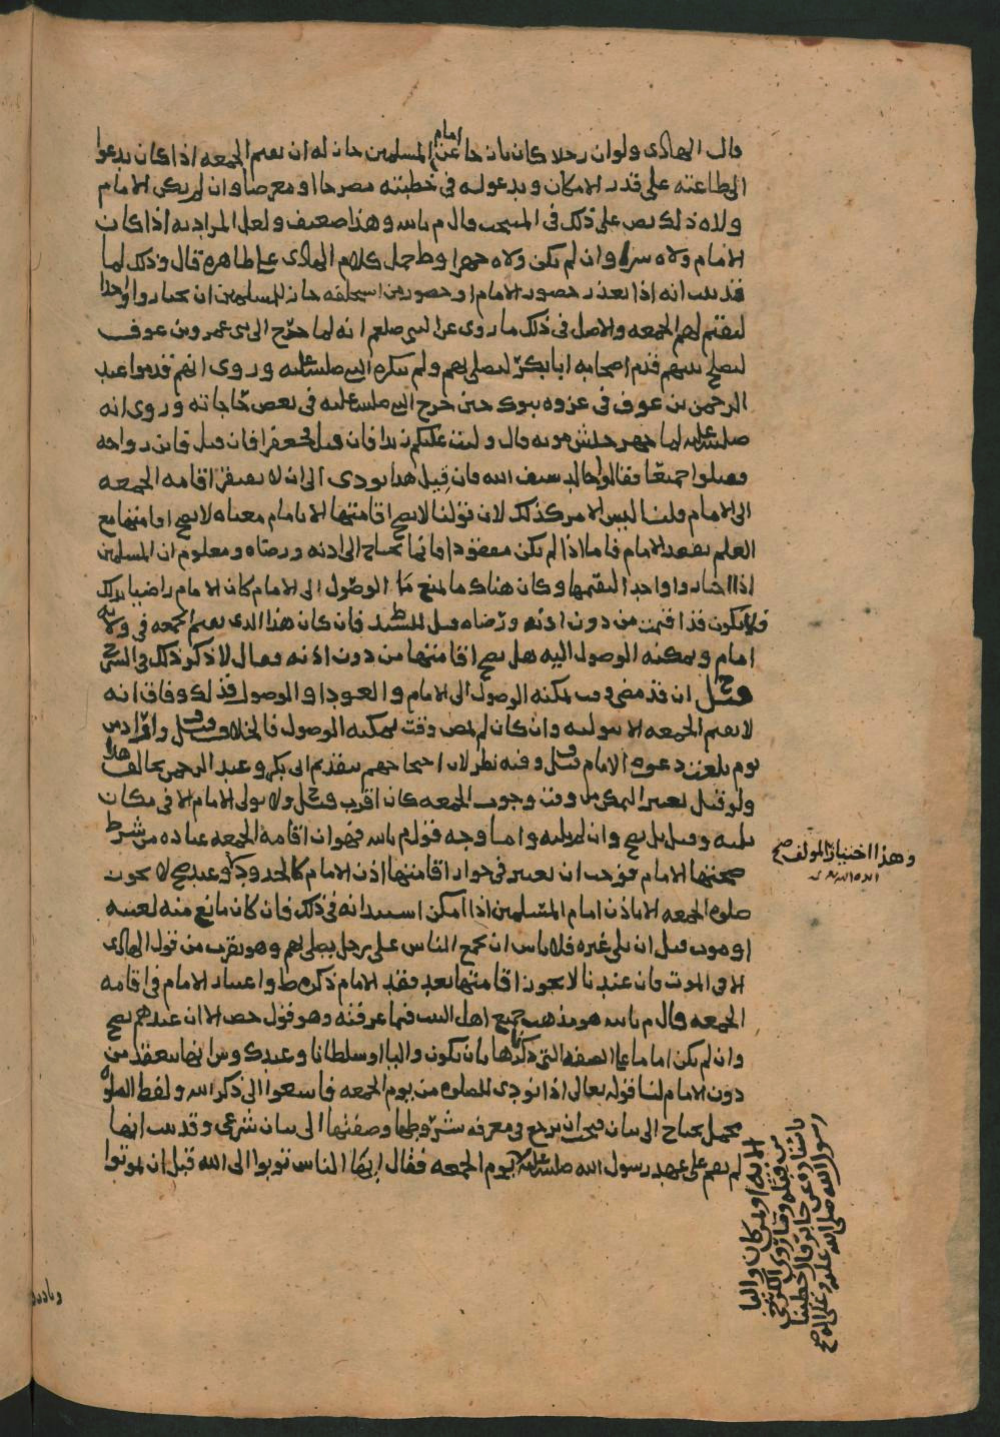 قال الهادى ولو ان رجلا كان نازحا عن امام المسلمين جاز له ان يقيم الجمعه اذا كان يدعوا
الى طاعته على قدر الامكان ويدعو له فى خطبته مصرحا او معرضا وان لم يكن الامام
ولاه ذلك نص على ذلك فى المنتخب قال م بالله وهذا ضعيف ولعل المراد به اذا كان
الامام ولاه سرا وان لم يكن ولاه جهرا وط حمل كلام الهادى على ظاهره قال وذلك لما
قد ثبت انه اذا تعذر حضور الامام او حضور من استخلفه جاز للمسلمين ان يختاروا واحدا
ليقيم لهم الجمعه والاصل فى ذلك ما روى عن النبي صلعم انه لما خرج الى بنى عمرو بن عوف
ليصلح بينهم قدم اصحابه ابا بكر ليصلى بهم ولم ينكره النبي صلى الله عليه وروى انهم قدموا عبد
الرحمن بن عوف فى غزوه تبوك حين خرج النبي صلى الله عليه فى بعض حاجاته وروى انه
صلى الله عليه لما جهز جيش موته قال وليت عليكم زيدا فان قتل فجعفرا فان قتل فابن رواحه
فقتلوا جميعا فقالوا خالد سيف الله فان قيل هذا يودى الى ان لا يفتقر اقامه الجمعه
الى الامام قلنا ليس الامر كذلك لان قولنا لا يصح اقامتها الا بامام معناه لا يصح اقامتها مع
العلم بفقد الامام فاما اذا لم يكن مفقودا فانما يحتاج الى اذنه ورضاه ومعلوم ان المسلمين
اذا اختاروا واحدا ليقيمها وكان هناك ما يمنع من الوصول الى الامام كان الامام راضيا بذلك
فلا يكون قد اقيمت من دون اذنه ورضاه قيل للسيد ط فان كان هذا الذى يقيم الجمعه فى ولايه
امام ويمكنه الوصول اليه هل يصح اقامتها من دون اذنه فقال لا ذكر ذلك فى الشرح
قيل ح ان قد مضى وقت يمكنه الوصول الى الامام والعود او الوصول فذلك وفاق انه
لا يقيم الجمعه الا بتوليه وان كان لم يمض وقت يمكنه الوصول فالخلاف وقيل
يوم بلغته دعوه الامام قيل ف وفيه نظر لان احتجاجهم بتقديم ابى بكر وعبد الرحمن يخالف هذا
ولو قيل يعتبر التمكن من وقت وجوب الجمعه كان اقرب قيل ح ولا يولى الامام الا فى مكان
يليه وقيل بل يصح وان لم يليه واما وجه قول م بالله فهو ان اقامه الجمعه عباده من شرط
صحتها الامام فوجب ان يعتبر فى جواز اقامتها اذن الامام كالحدود وعند ح لا يجوز
صلوه الجمعه الا باذن امام المسلمين اذا امكن استيذانه فى ذلك فان كان مانع منه لغيبه
او موت قبل ان يلى غيره فلا باس ان يجمع الناس على رجل يصلى بهم وهو يقرب من قول الهادى
الا فى الموت فان عندنا لا يجوز اقامتها بعد فقد الامام ذكره ط واعتبار الامام فى اقامه
الجمعه قال م بالله هو مذهب جميع اهل البيت فيما عرفته وهو قول ح ص الا ان عندهم يصح
وان لم يكن اماما على الصفه التى ذكرناها بان يكون واليا او سلطانا وعند ك وش انها تنعقد من
دون الامام لنا قوله تعالى اذا نودى للصلوه من يوم الجمعه فاسعوا الى ذكر الله ولفظ الصلوه
مجمل يحتاج الى بيان فيجب ان يرجع فى معرفه شروطها وصفتها الى بيان شرعى وقد ثبت انها
لم تقم على عهد رسول الله صلى الله عليه الا به او لمن كان واليا
من قبله وقد روى الكرخى
باسناده عن جابر قال خطبنا
رسول الله صلى الله عليه وعلى اله صح
يوم الجمعه فقال ايها الناس توبوا الى الله قبل ان تموتوا
وهذا اختيار المولف صح
ايده الله تعالى
وبادروا